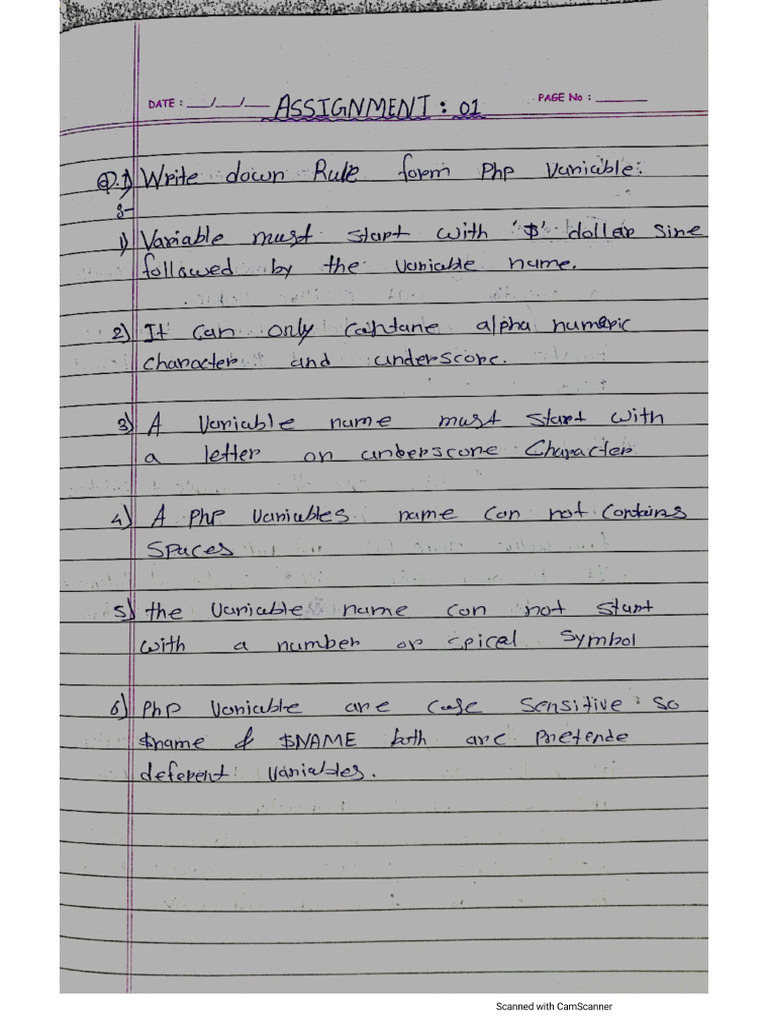 DATE : __/__/__ ASSIGNMENT : 01 PAGE No : ______
Q.1) Write down Rule form Php Variable:
:-
1) Variable must start with '$' dollar sine
followed by the variable name.
2) It can only contane alpha numeric
character and underscore.
3) A Variable name must start with
a letter or unberscore Character
4) A PhP Variables name can not Contains
Spaces
5) the Variable name can not start
with a number or spical Symbol
6) PhP Variable are case Sensitive so
$name & $NAME both are Pretende
deferent variables.
Scanned with CamScanner